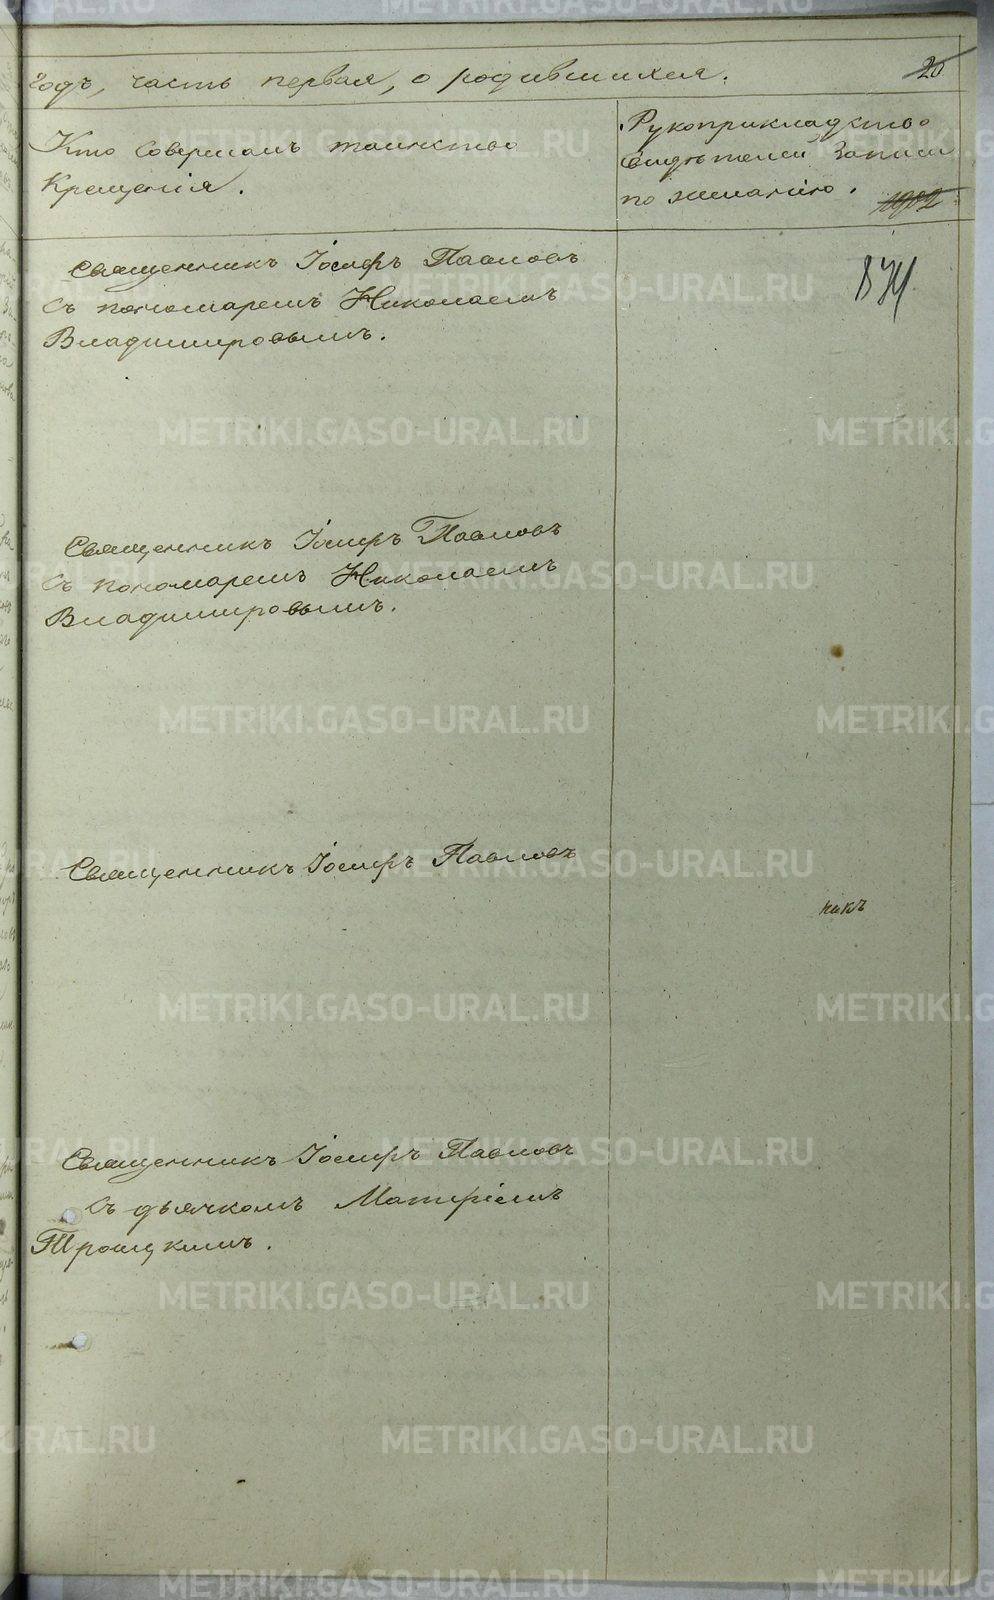 годъ, часть первая, о родившихся. 20
Кто совершалъ таинство
Крещенія.
Рукоприкладство
свидѣтелей записи
по желанію. 1902
874
Священникъ Іосифъ Павловъ
съ пономаремъ Николаемъ
Владимировымъ.
Священникъ Іосифъ Павловъ
съ пономаремъ Николаемъ
Владимировымъ.
Священникъ Іосифъ Павловъ
никъ
Священникъ Іосифъ Павловъ
съ дьячкомъ
METRIKI.GASO-URAL.RU